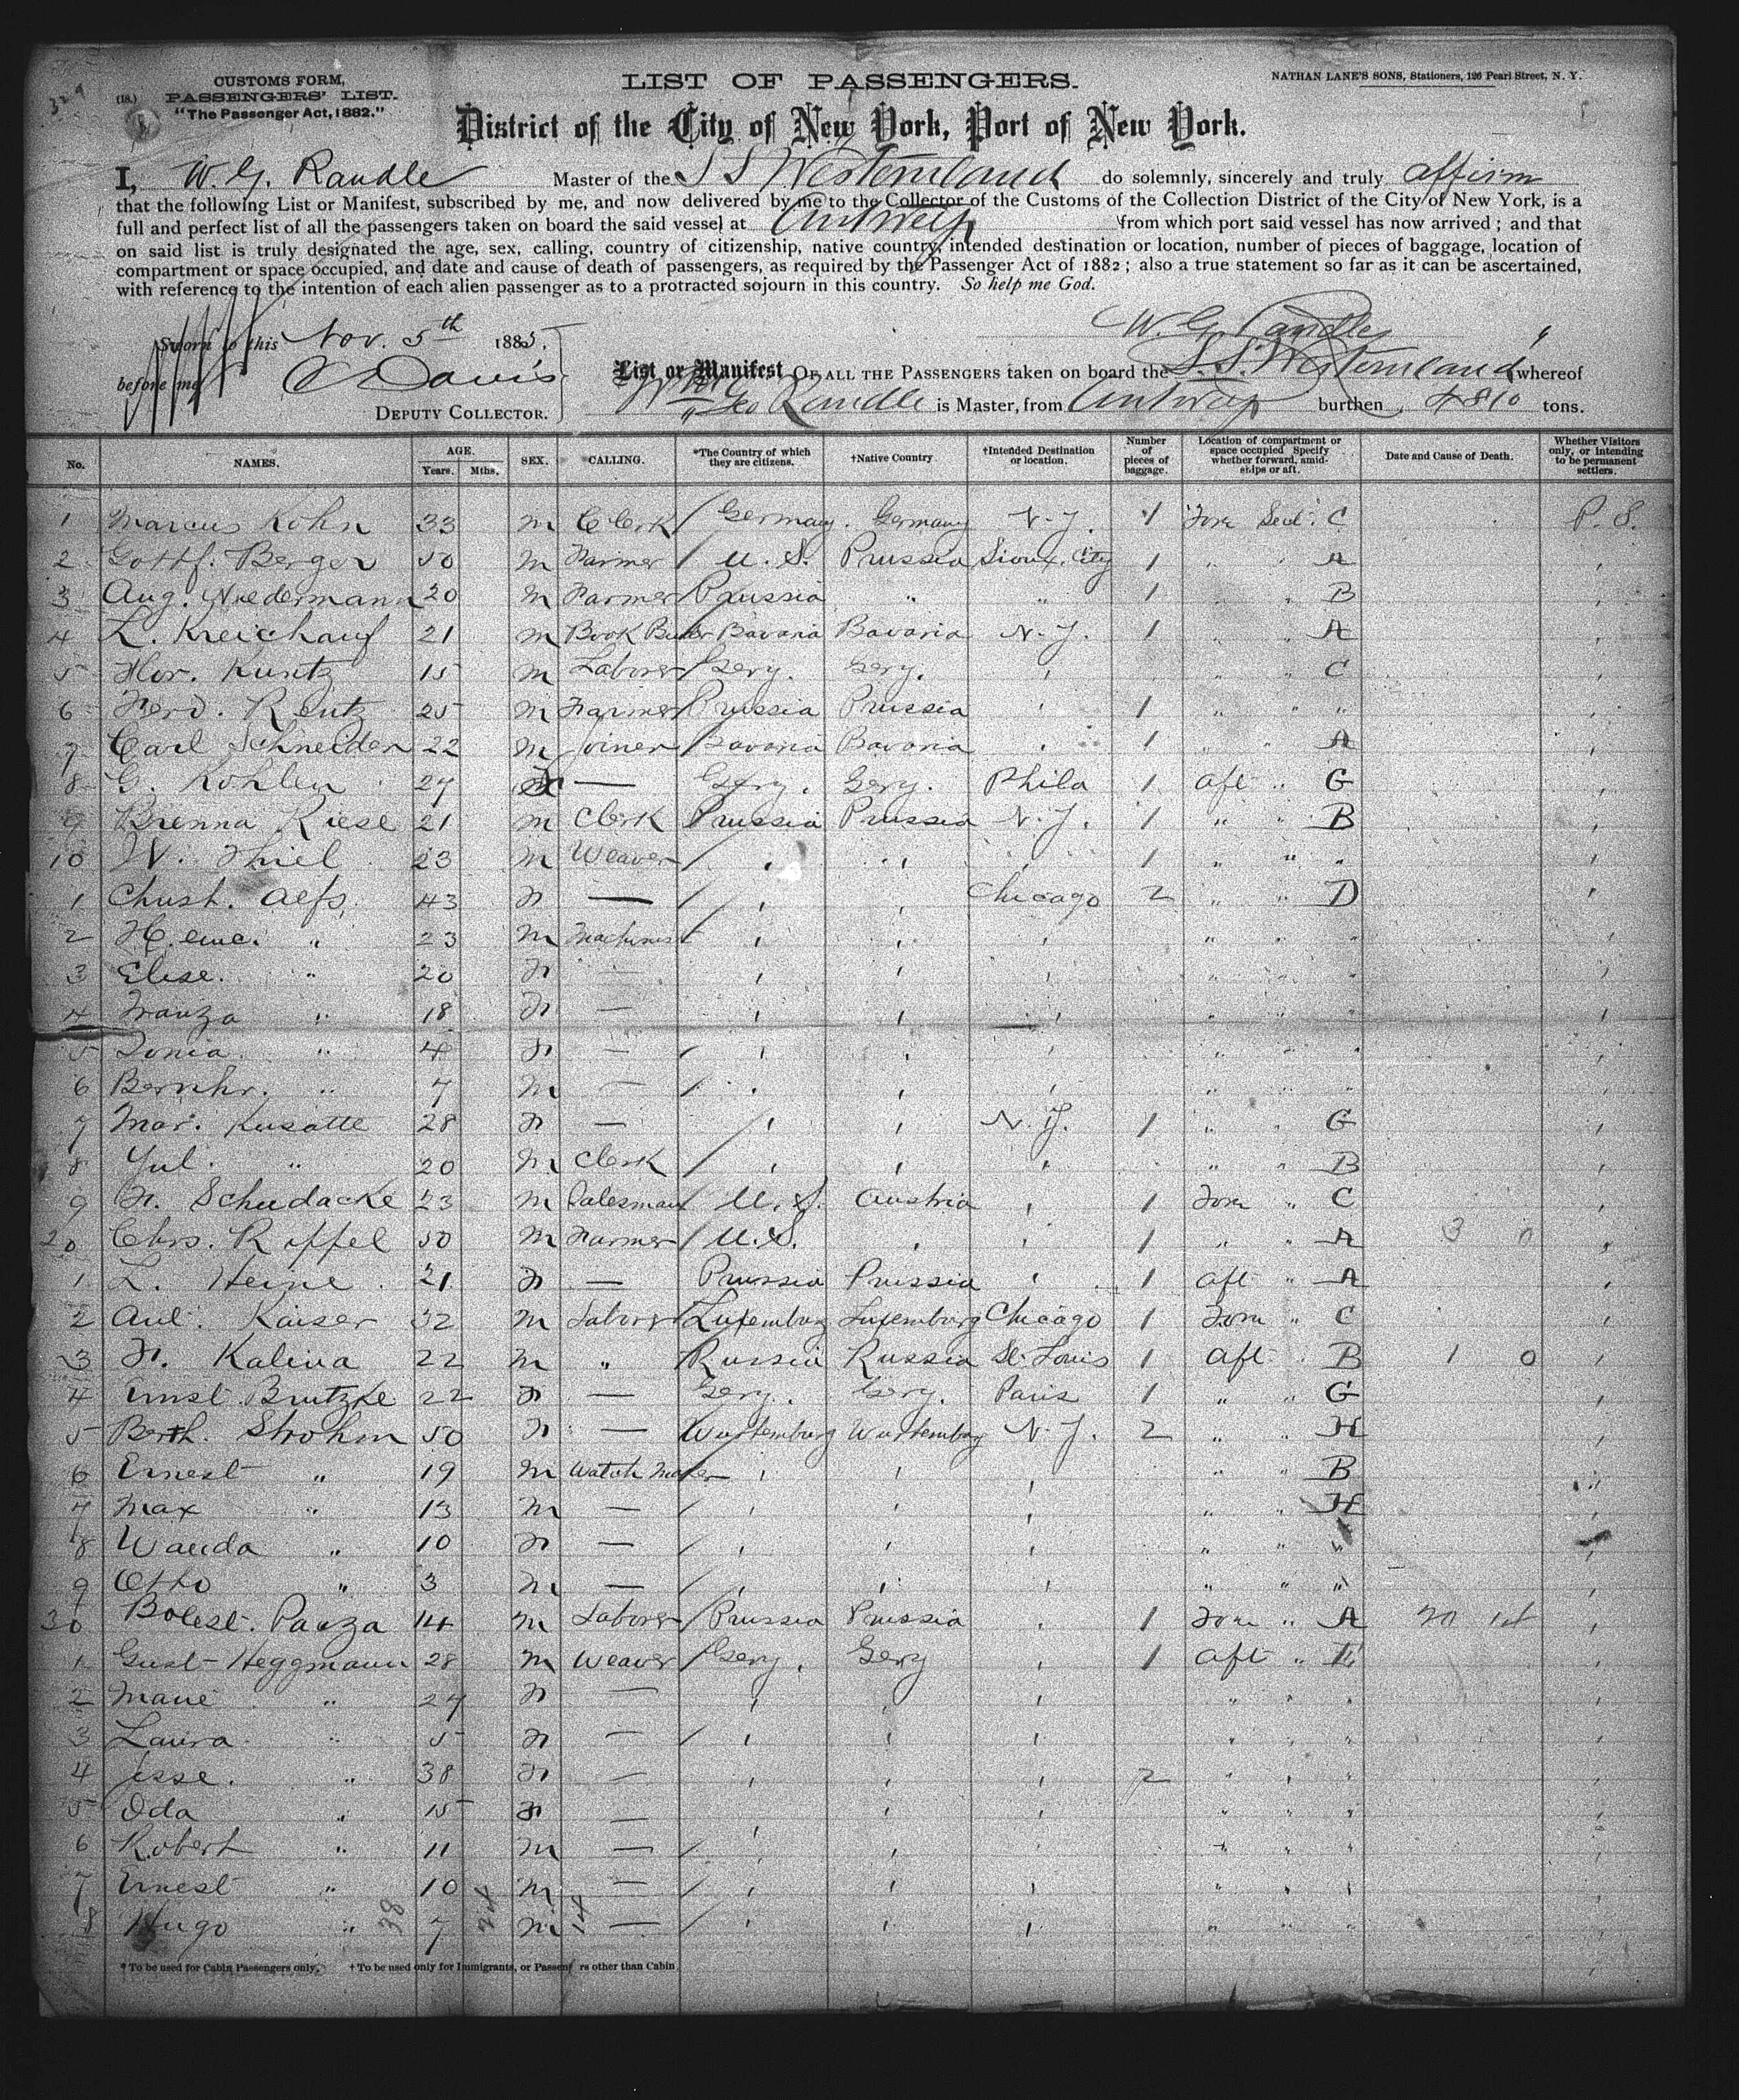 324
(18.)
CUSTOMS FORM,
PASSENGERS' LIST.
"The Passenger Act, 1882."
LIST OF PASSENGERS.
NATHAN LANE'S SONS, Stationers, 126 Pearl Street, N. Y.
District of the City of New York, Port of New York.
I, W. G. Randle Master of the S S Westernland do solemnly, sincerely and truly affirm
that the following List or Manifest, subscribed by me, and now delivered by me to the Collector of the Customs of the Collection District of the City of New York, is a
full and perfect list of all the passengers taken on board the said vessel at Antwerp from which port said vessel has now arrived; and that
on said list is truly designated the age, sex, calling, country of citizenship, native country, intended destination or location, number of pieces of baggage, location of
compartment or space occupied, and date and cause of death of passengers, as required by the Passenger Act of 1882; also a true statement so far as it can be ascertained,
with reference to the intention of each alien passenger as to a protracted sojourn in this country. So help me God.
W. G. Randle
Sworn to this Nov. 5th 1885.
before me Davis
DEPUTY COLLECTOR.
List or Manifest OF ALL THE PASSENGERS taken on board the S.S. Westernland whereof
Geo Randle is Master, from Antwerp burthen 4810 tons.
No. NAMES. AGE. Years. Mths. SEX. CALLING. *The Country of which they are citizens. †Native Country. †Intended Destination or location. Number of pieces of baggage. Location of compartment or space occupied Specify whether forward, amidships or aft. Date and Cause of Death. Whether Visitors only, or intending to be permanent settlers.
1 Marcus Kohn 33 m Clerk / Germany. Germany N.Y. 1 Forw Sect. C P. S.
2 Gottf. Berger 50 m Farmer / U. S. Prussia Sioux City 1 " " A "
3 Aug. Niedermann 20 m Farmer Prussia " " 1 " " B "
4 L. Kreichauf 21 m Book Binder Bavaria Bavaria N.Y. 1 " " A "
5 Hor. Kuntz 15 m Laborer Gery. Gery. " " " C "
6 Ferd. Rentz 25 m Farmer Prussia Prussia " 1 " " " "
7 Carl Schneider 22 m Joiner Bavaria Bavaria " 1 " " A "
8 G. Kohler 27 — Gery. Gery. Phila 1 aft " G "
9 Brenna Riese 21 m Clerk Prussia Prussia N.Y. 1 " " B "
10 W. Thiel 23 m Weaver / " " " 1 " " " "
1 Christ. Alfs 43 F — / " " Chicago 2 " " D "
2 H. " 23 m Machinist " " " " " " "
3 Elise. " 20 F — " " " " " " "
4 Franza " 18 F — " " " " " " "
5 Tonia " 4 F — / " " " " " " "
6 Bernhr. " 7 m — / " " " " " " "
7 Mar. Kusatte 28 F — / " " N.Y. 1 " " G "
8 Jul. " 20 m Clerk / " " " " " B "
9 F. Schudacke 23 m Salesman / U. S. Austria " 1 Forw " C "
20 Chrs. Riffel 50 m Farmer / U.S. " " 1 " " A 3 0 "
1 L. Heine 21 F — Prussia Prussia " 1 aft " A "
2 Ant. Kaiser 32 m Laborer Luxemburg Luxemburg Chicago 1 Forw " C "
3 F. Kalina 22 m " Russia Russia St. Louis 1 aft " B 1 0 "
4 Ernst Brutzke 22 F — Gery. Gery. Paris 1 " " G "
5 Berth. Strohm 50 F — Wurtemburg Wurtemburg N.Y. 2 " " H "
6 Ernest " 19 m Watch Maker " " " " " B "
7 Max " 13 m — / " " " " " H "
8 Wanda " 10 F — / " " " " " " "
9 Otto " 3 m — / " " " " " " "
30 Bolest. Pauza 14 m Laborer / Prussia Prussia " 1 Forw " A "
1 Gust Heggmann 28 m Weaver / Gery. Gery " 1 aft " E "
2 Marie " 24 F — " " " " " " "
3 Laura " 5 F — / " " " " " " "
4 Jesse. " 38 F — " " " 2 " " " "
5 Oda " 15 F — " " " " " " "
6 Robert " 11 m — / " " " " " " "
7 Ernest " 10 m — / " " " " " " "
8 Hugo " 7 m — / " " " " " " "
38 24 14
* To be used for Cabin Passengers only. † To be used only for Immigrants, or Passengers other than Cabin